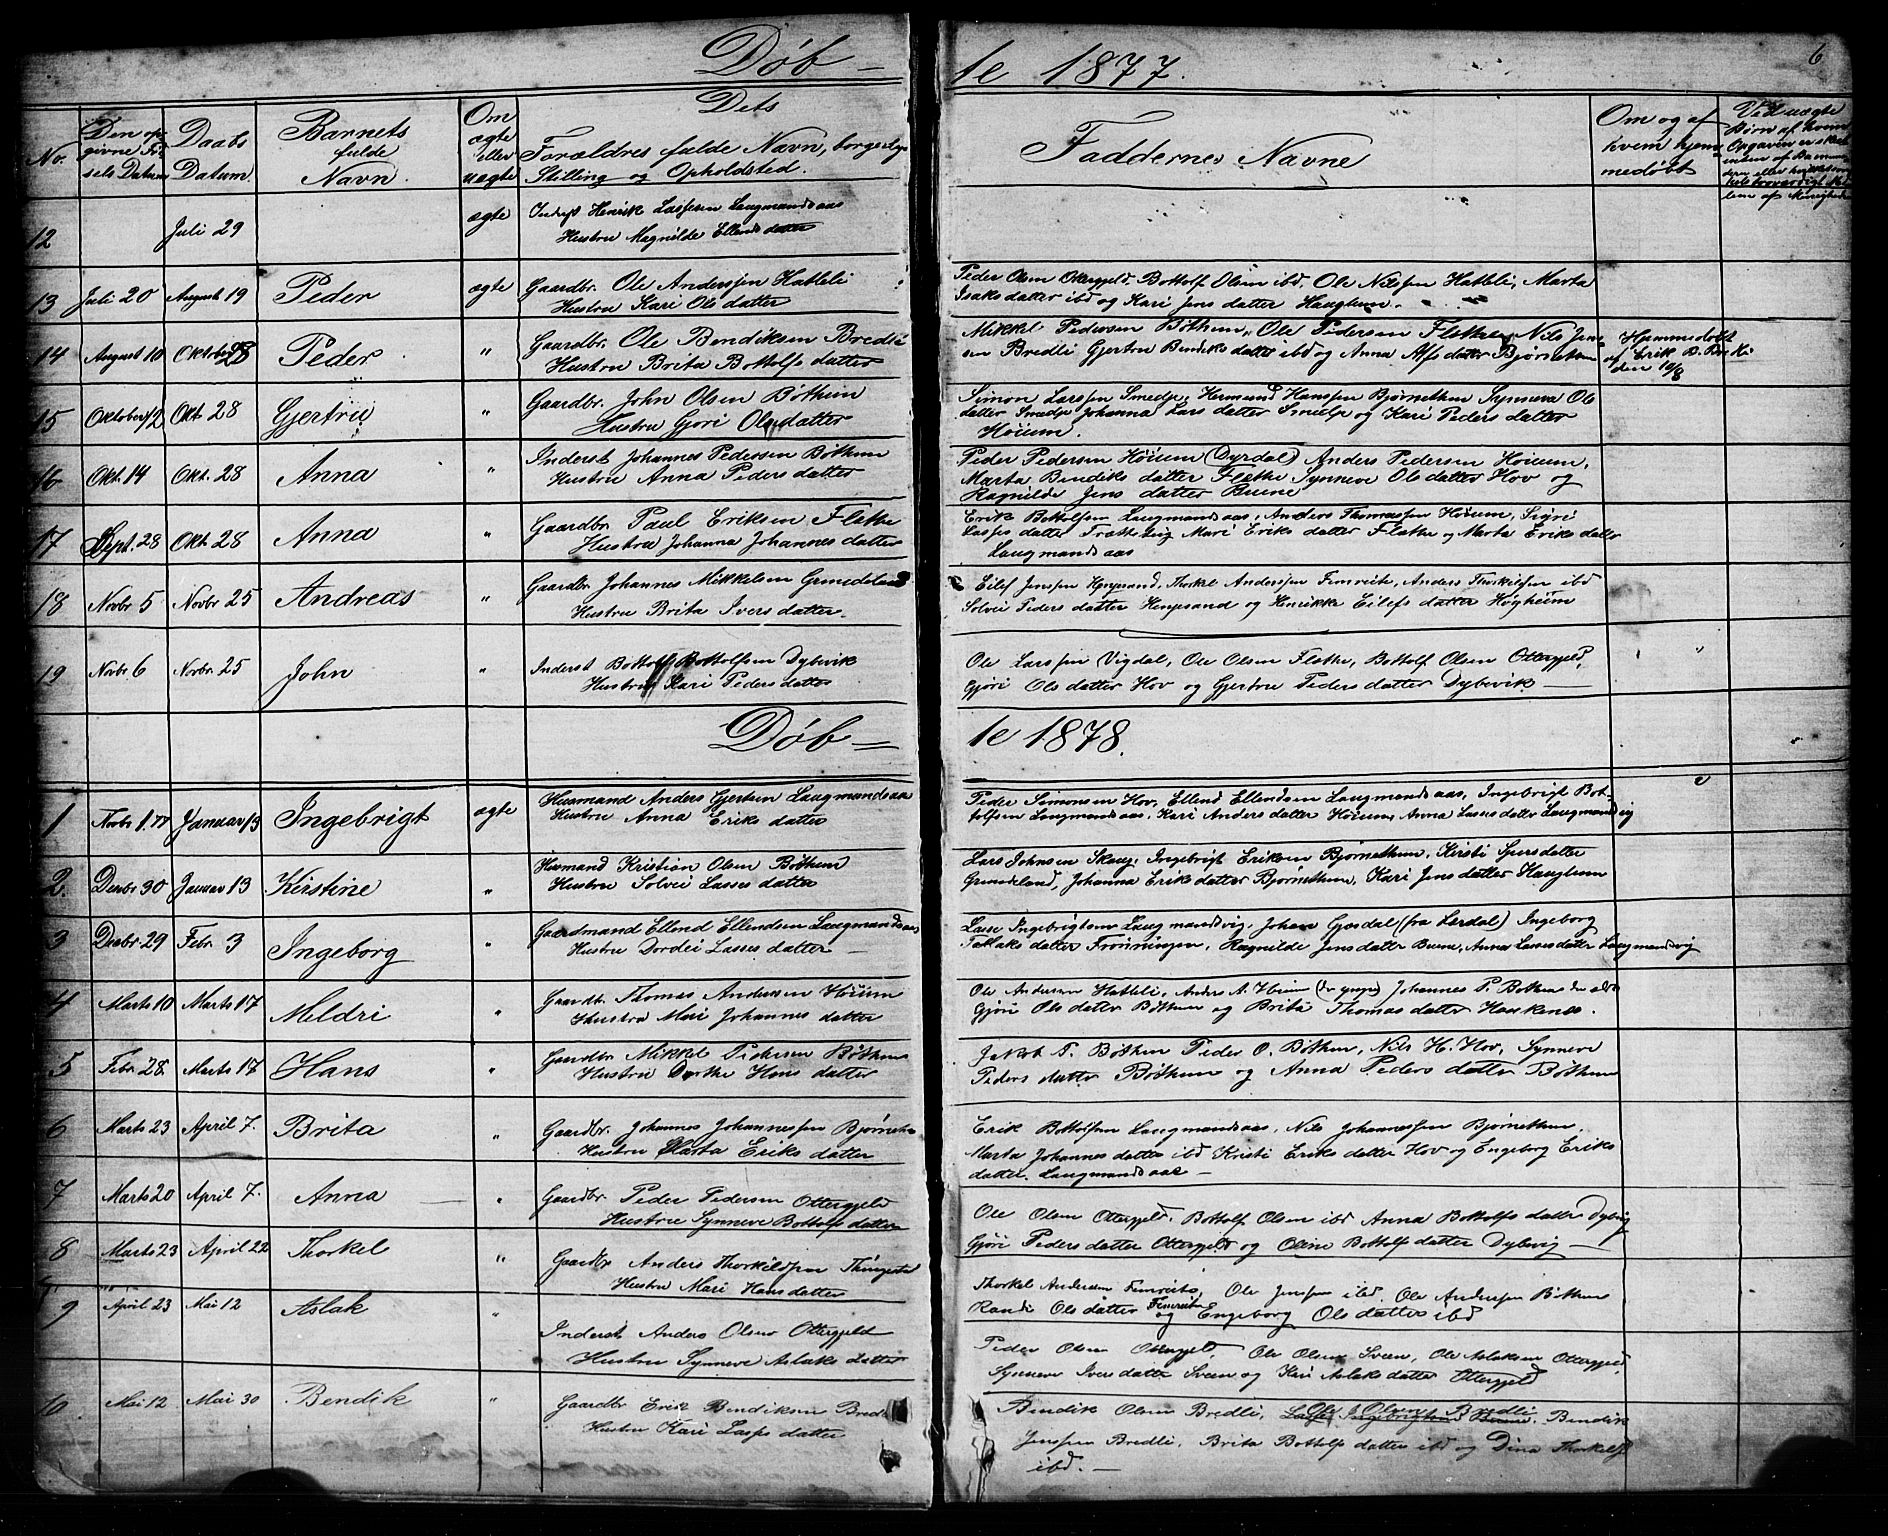 Døb-
te 1877.
6
No.
Den opgivne Fødselsdatum
Daabs Datum
Barnets fulde Navn
Om ægte eller uægte
Dets Forældres fulde Navn, borgerlige Stilling og Opholdsted.
Faddernes Navne
Om og af hvem hjemmedøbt
12 Juli 29 ægte Inderst Henrik Lassesen Laugmandsaas
Hustru Magnilde Ellends datter
13 Juli 20 August 19 Peder ægte Gaardbr. Ole Anderssen Hatleli
Hustru Kari Ols datter
Peder Olsen Ottergjeld, Bottolf Olsen ibd, Ole Nilssen Hatleli, Marta
Isaks datter ibd og Kari Jens datter Haugtun.
14 August 10 Oktober 28 Peder " Gaardbr. Ole Bendiksen Bredli
Hustru Brita Bottolfs datter
Mikkel Pedersen Bøthun, Ole Pedersen Flathe, Nils Jens
sen Bredli Gjertru Bendiks datter ibd og Anna Alfs datter Bjørnethun
Hjemmedøbt
af Erik B. Bredli
den 10/8
15 Oktober 12 Okt. 28 Gjertru " Gaardbr. John Olsen Bøthun
Hustru Gjøri Olsdatter
Simon Larssen Smedje, Hermund Hanssen Bjørnethun Synneva Ols
datter Smedje Johanna Lars datter Smedje og Kari Peders datter
Høium.
16 Okt. 14 Okt. 28 Anna " Inderst Johannes Pedersen Bøthun
Hustru Anna Peders datter
Peder Pedersen Høium (Dyrdal) Anders Pedersen Høium,
Marta Bendiks datter Flathe Synneve Ols datter Hov og
Ragnilde Jens datter Buene
17 Sept. 28 Okt 28 Anna " Gaardbr. Paul Eriksen Flathe
Hustru Johanna Johannes datter
Erik Bottolfsen Laugmandsaas, Anders Thomassen Høium, Sigri
Lasses datter Mari Eriks datter Flathe og Marta Eriks datter
Laugmandsaas
18 Novbr 5 Novbr 25 Andreas " Gaardbr Johannes Mikkelsen Grindeland
Hustru Brita Ivers datter.
Eilef Jenssen Hengesand, Thorkel Anderssen Fimreite, Anders Thorkilssen ibd
Solvei Peders datter Hengesand og Henrikke Eilefs datter Høgheim
19 Novbr. 6 Novbr. 25 John " Inderst Bottolf Bottolfsen Dybevik
Hustru Kari Peders datter
Ole Larssen Vigdal, Ole Olsen Flathe, Bottolf Olsen Ottergjeld,
Gjøri Ols datter Hov og Gjertru Peders datter Dybevik
Døb-
te 1878.
1 Novbr 1.77 Januar 13 Ingebrigt ægte Husmand Anders Gjertsen Laugmandsaas
Hustru Anna Eriks datter
Peder Simonsen Hov, Ellend Ellendsen Laugmandsaas, Ingebrigt Bot-
tolfsen Laugmandsaas, Kari Anders datter Høium, Anna Lasses datter Laugmandvig
2. Decbr 30 Januar 13 Kirstine " Husmand Kristian Olsen Bøthun
Hustru Solvei Lasses datter
Lars Johnsen Skaug, Ingebrigt Eriksen Bjørnethun, Kirsti Sjursdatter
Grindeland, Johanna Eriks datter Bjørnethun, Kari Jens datter Haugtun
3 Decbr 29 Febr. 3 Ingeborg " Gaardmand Ellend Ellendsen Laugmandsaas
Hustru Dordei Lasses datter
Lasse Ingebrigtsen Laugmandsvig, Johan Gjøsdal (fra Lærdal) Ingeborg
Aslaks datter Frønningen, Ragnilde Jensdatter Buene, Anna Lassesdatter Laugmandsvig
4 Marts 10 Marts 17 Meldri " Gaardbr. Thomas Andersen Høium
Hustru Mari Johannes datter
Ole Andersen Hatleli, Anders A. Høium (den yngre) Johannes P. Bøthun den ældre
Gjøri Ols datter Bøthun og Brita Thomas datter Haukenæs.
5 Febr. 28 Marts 17 Hans " Gaardbr Mikkel Pedersen Bøthun
Hustru Dorthe Hans datter
Jakob P. Bøthun Peder O. Bøthun, Nils H. Hov, Synneve
Peders datter Bøthun og Anna Peders datter Bøthun
6 Marts 23 April 7. Brita " Gaardbr. Johannes Johannessen Bjørnethun
Hustru Marta Eriks datter
Erik Bottolfsen Laugmandsaas, Nils Johannessen Bjørnethun,
Marta Johannes datter ibd Kristi Eriks datter Hov og Engeborg Eriks
datter Laugmandsaas
7 Marts 20 April 7. Anna " Gaardbr. Peder Pedersen Ottergjeld
Hustru Synneve Bottolfs datter
Ole Olsen Ottergjeld, Bottolf Olsen ibd Anna Bottolfs datter Dybvig
Gjøri Peders datter Ottergjeld og Oline Bottolfs datter Dybvig
8 Marts 23 April 22 Thorkel " Gaardbr Anders Thorkilssen Thingstad
Hustru Mari Hans datter
Thorkel Andersen Fimreite, Ole Jenssen ibd. Ole Anderssen Bøthun
Randi Ols datter Fimreite og Engeborg Ols datter ibd
9 April 23 Mai 12 Aslak " Inderst Anders Olsen Ottergjeld
Hustru Synneve Aslaks datter
Peder Olsen Ottergjeld, Ole Olsen Sveen, Ole Aslaksen Ottergjeld,
Synneve Ivers datter Sveen og Kari Aslaks datter Ottergjeld
10 Mai 12 Mai 30 Bendik " Gaardbr Erik Bendiksen Bredli
Hustru Kari Lasses datter
Bendik Olsen Bredli, Ole Olsen Bredli, Bendik
Jenssen Bredli, Brita Bottolfs datter ibd og Dina Thorkels
ibd.